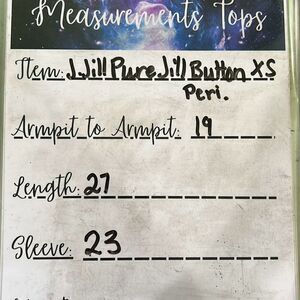 Measurements Tops
Item: J.Jill Pure Jill Button XS
Peri.
Armpit to Armpit: 19
Length: 27
Sleeve: 23